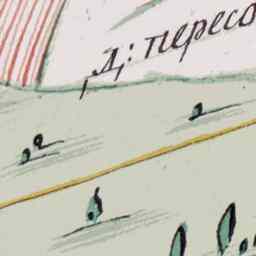 Д: пересо